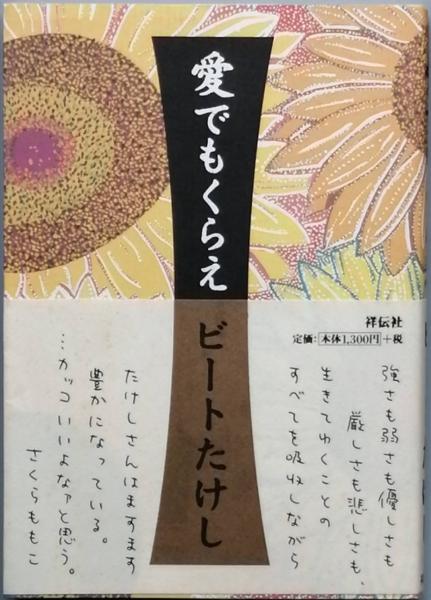 愛でもくらえ
ビートたけし
祥伝社
定価:本体1,300円+税
強さも弱さも優しさも
厳しさも悲しさも、
生きてゆくことの
すべてを吸収しながら
たけしさんはますます
豊かになっている。
…カッコいいよなァと思う。
さくらももこ